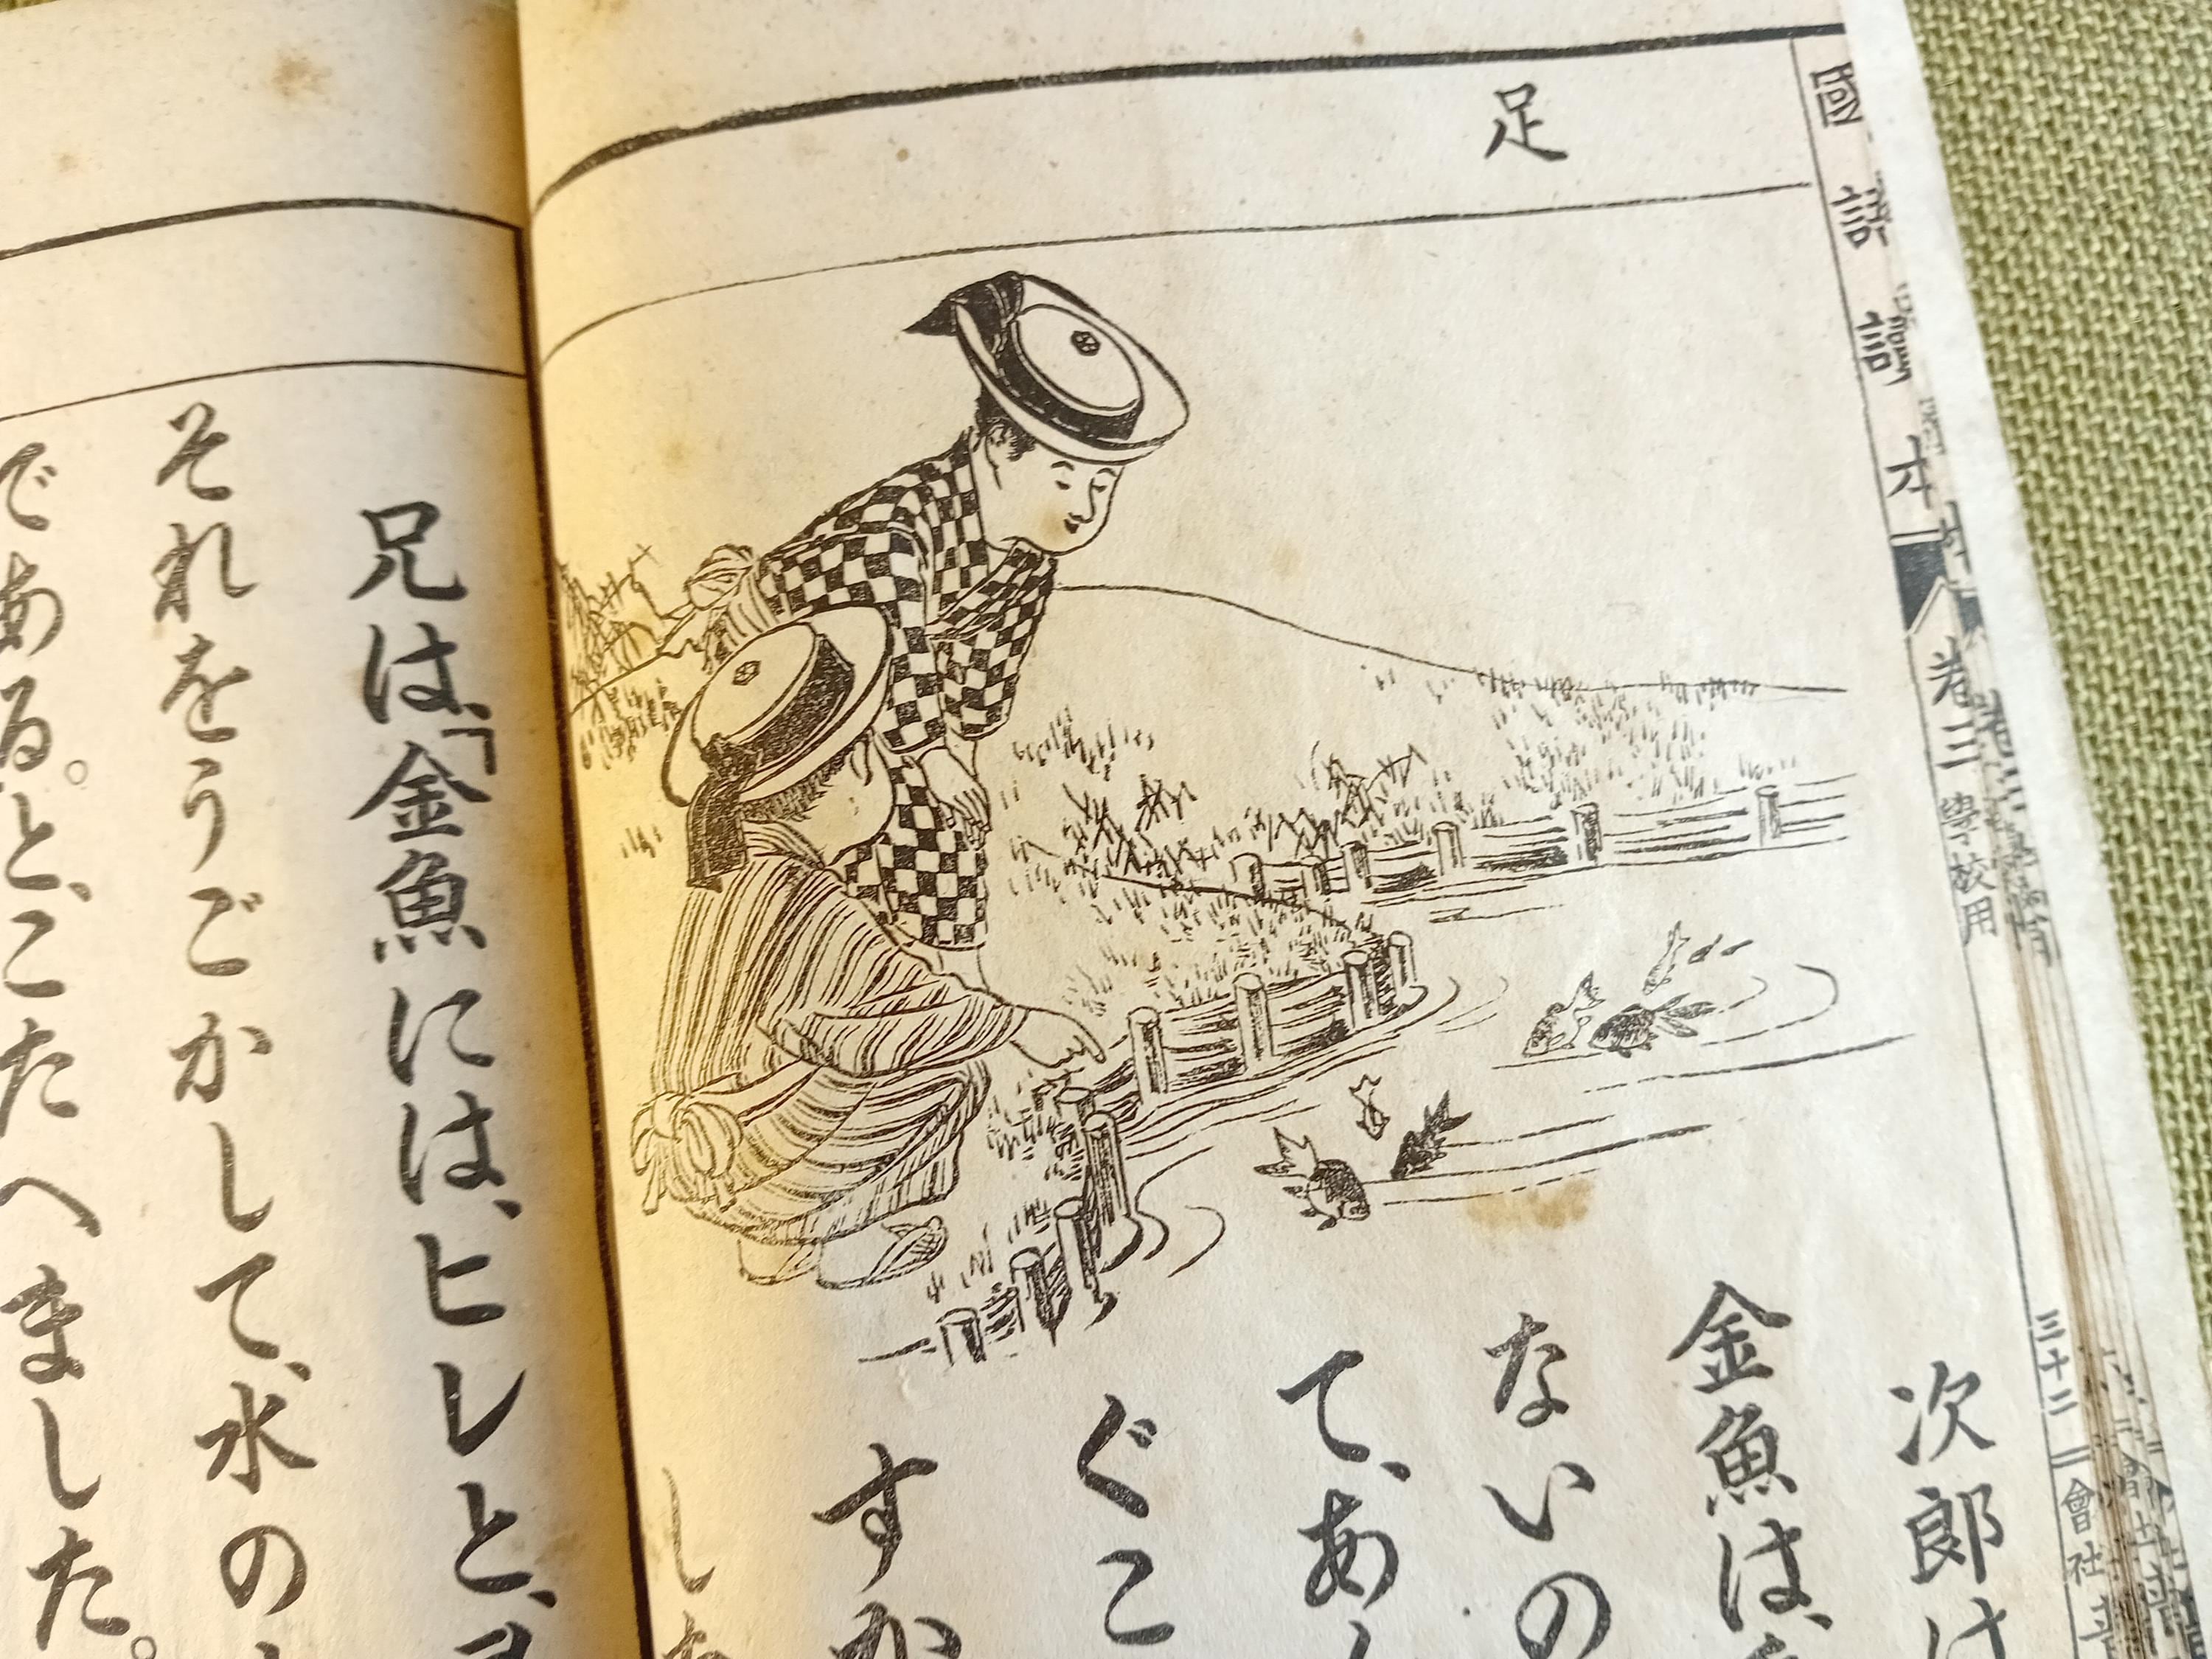 足
國語讀本
卷三
學校用
三十二
會社
次郎は
金魚は、
ないの
て、あ
ぐこ
すか
し
兄は、「金魚には、ヒレと、
それをうごかして、水の
である。」と、こたへました。